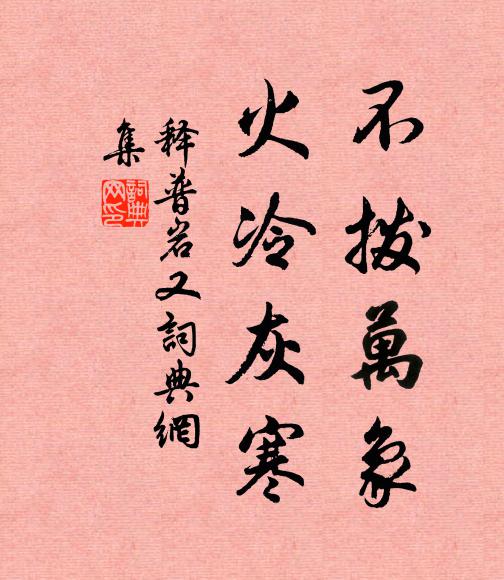 不拨萬象
火冷灰寒
釋普岩又詞典網
集
詞典
网印